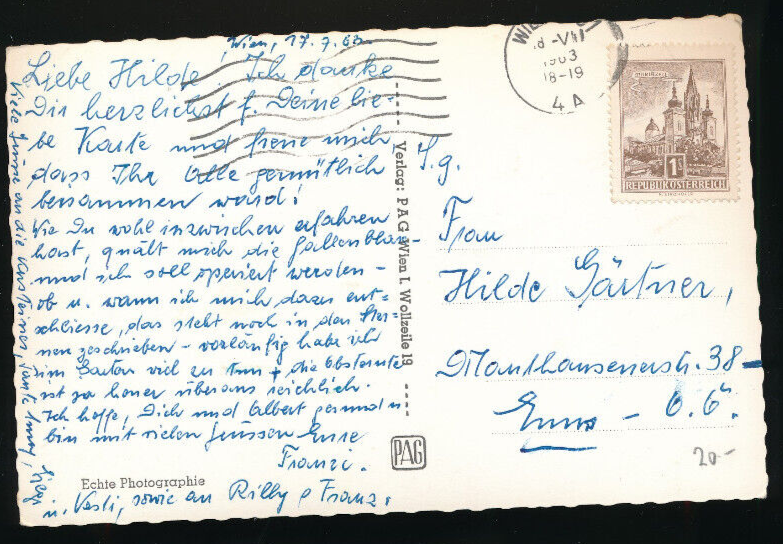 Wien, 17.7.63.
Liebe Hilde, Ich danke
Dir herzlichst f. Deine lie-
be Karte und freue mich
dass Ihr Alle gemütlich
beisammen ward!
Wie Du wohl inzwischen erfahren
hast, quält mich die Gallenbla-
und ich soll operiert werden -
ob u. wann ich mich dazu ent=
schliesse, das steht noch in den Ster-
nen geschrieben - vorläufig habe ich
im Garten viel zu tun + die Obsternte
ist ja heuer überaus reichlich.
Ich hoffe, Dich und Albert gesund u.
bin mit vielen Grüssen Eure
Franzi.
Viele Grüsse an die
u. Vesti, sowie an Rilly & Franz.
Echte Photographie
Verlag: PAG Wien I. Wollzeile 19
PAG
WIE
-VII
1963
18-19
4A
MARIAZELL
1S
REPUBLIK ÖSTERREICH
S.g.
Frau
Hilde Gärtner,
Mauthausenerstr. 38
Enns - O.Ö.
20-